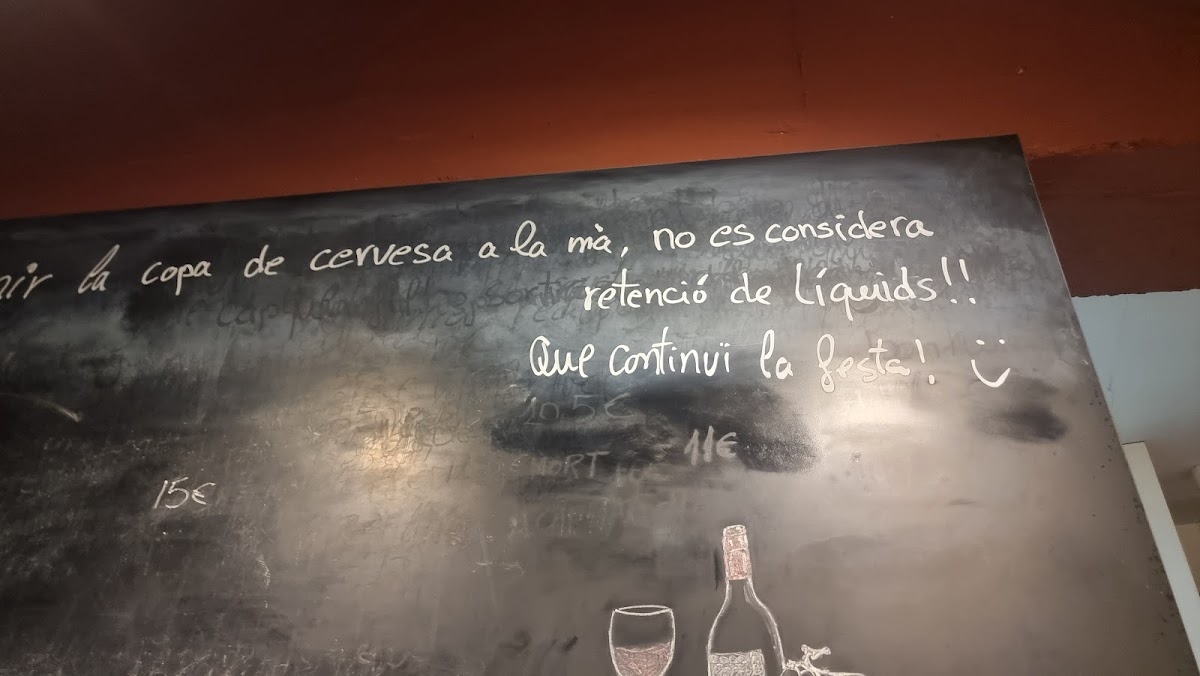 la copa de cervesa a la mà, no es considera
retenció de líquids!!
Que continuï la festa! :)
10.5€
11€
15€